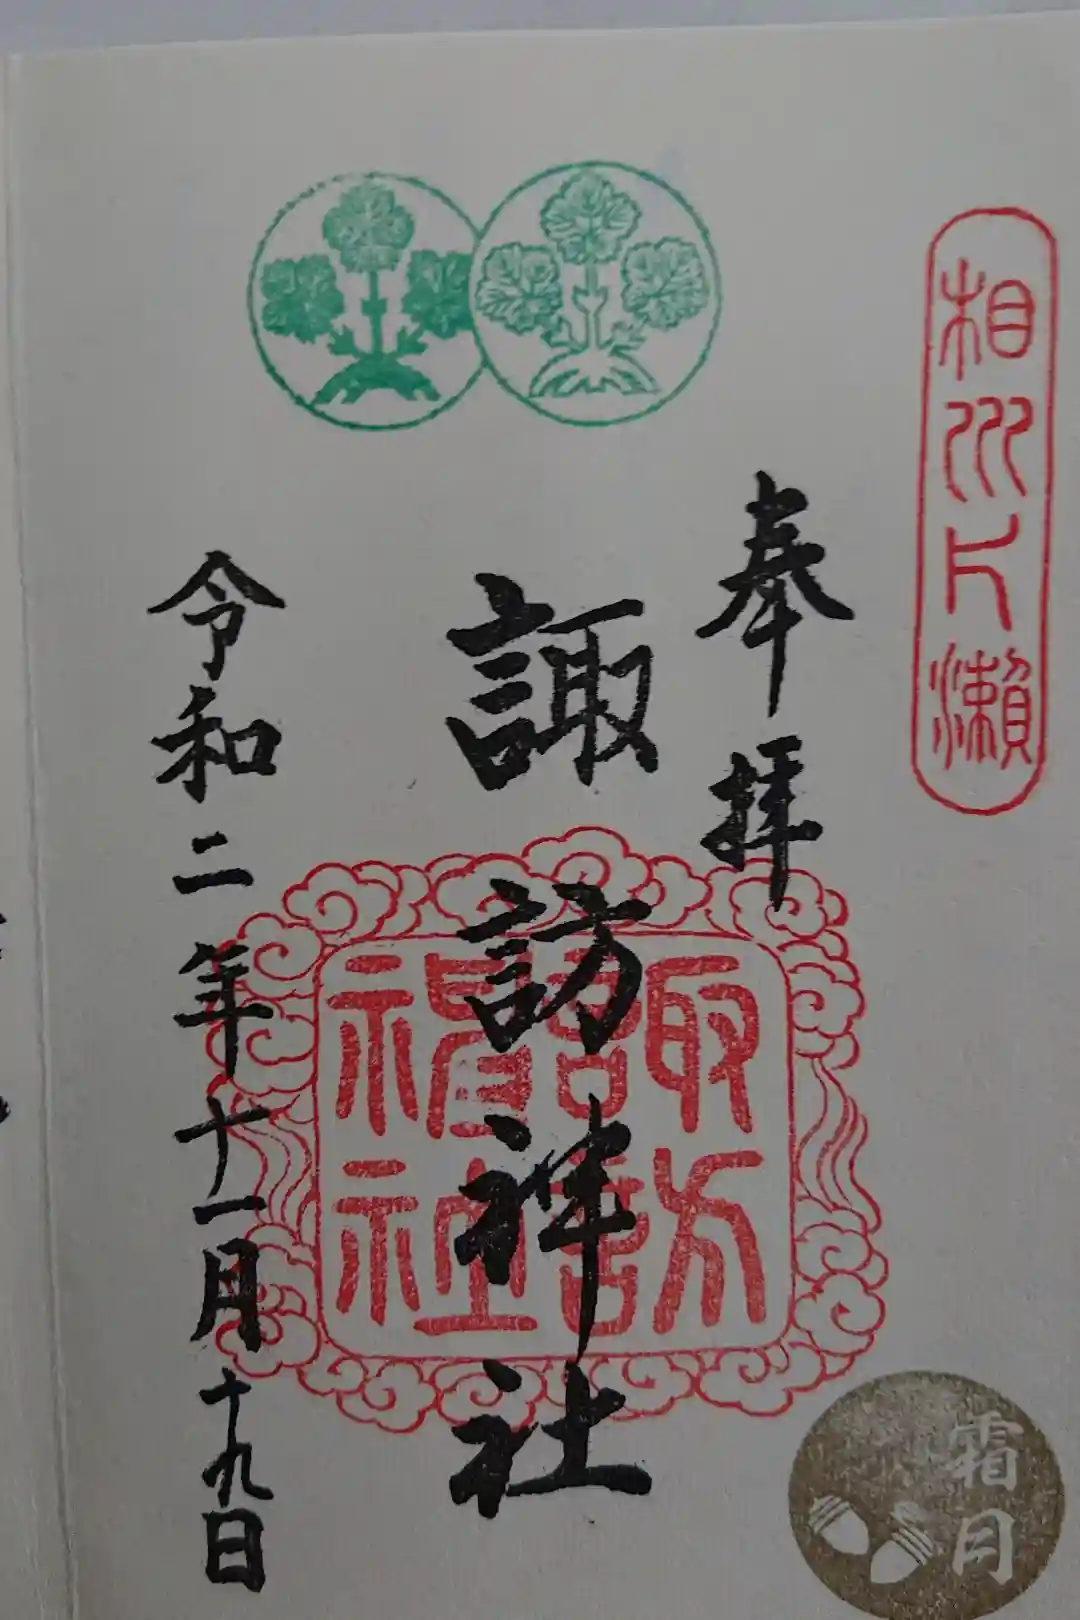 相州片瀬
奉拝
諏訪神社
諏訪神社
令和二年十一月十九日
霜月